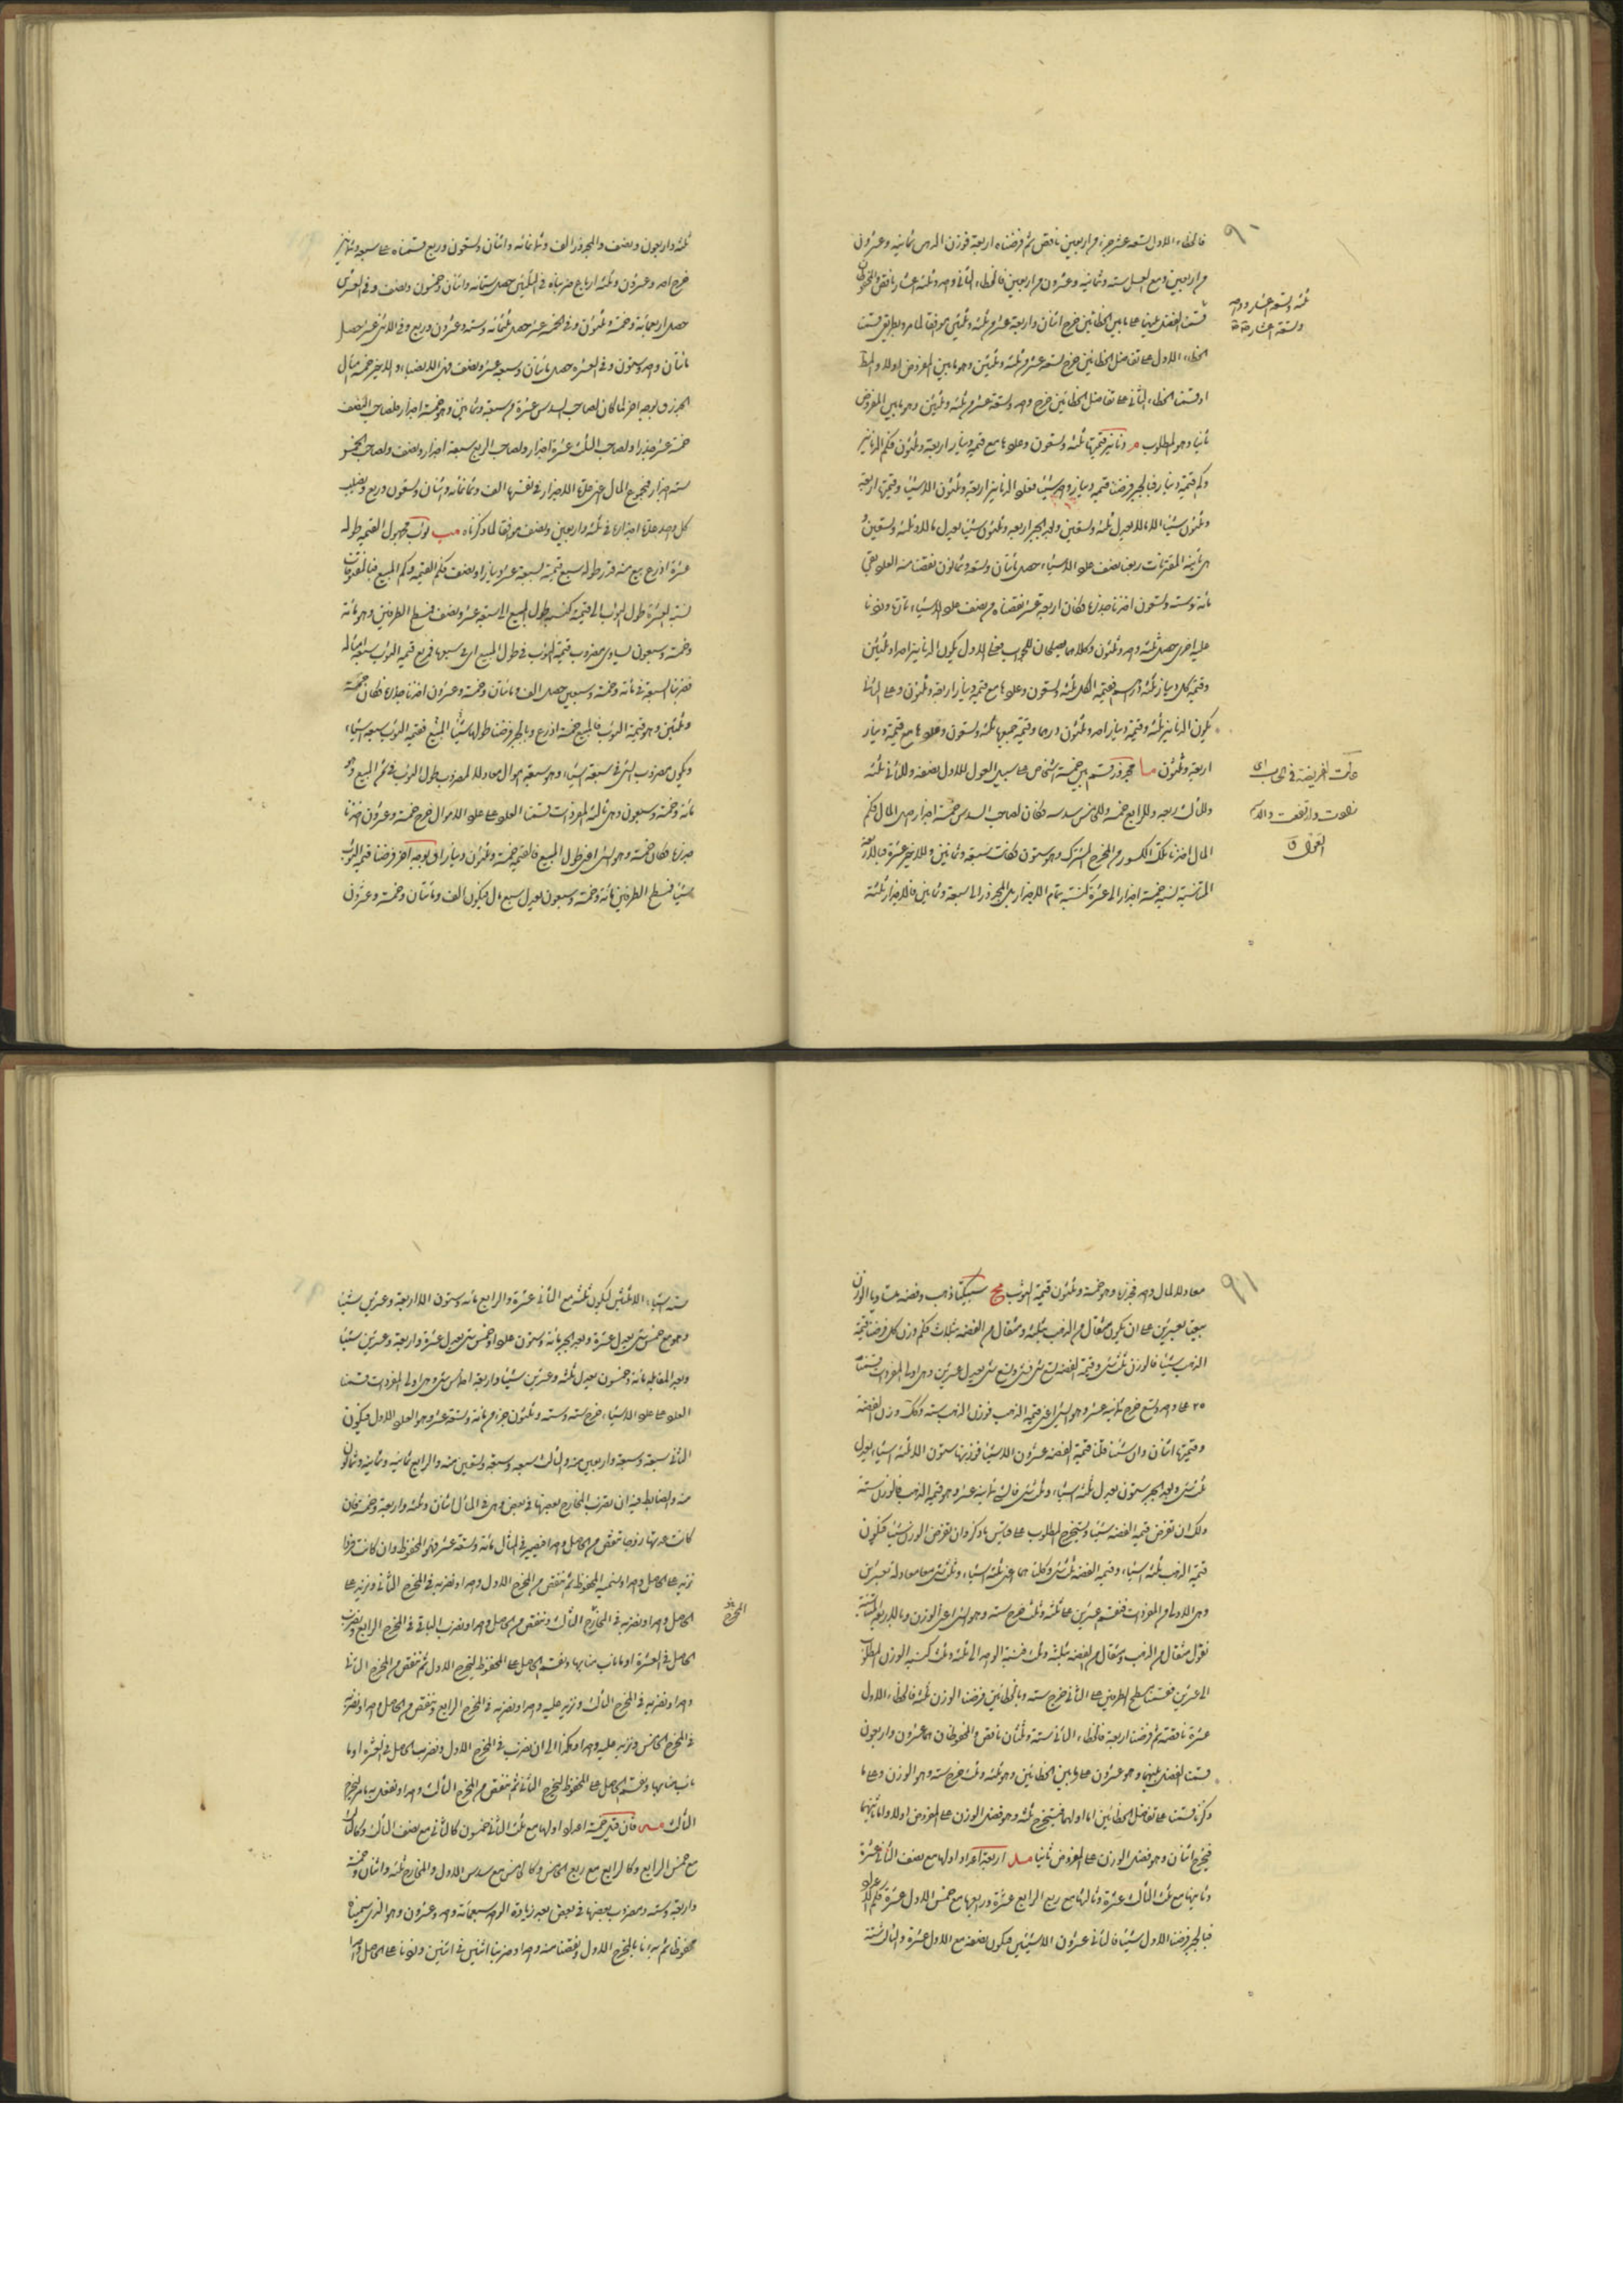 ٩٠
فالخطاء الاول تسعة عشر جزء من اربعين ناقص ثم فرضناه اربعة فوزن الدبس ثمانية وعشرون
من اربعين ومع العسل ستة وثمانية وعشرون من اربعين فالخطاء الثانى واحد وثلثة عشار ناقص
قسمنا الفضل بينهما على ما بين الخطائين خرج اثنان واربعة عشر من ثلثة وثلثين موافقا لما مر وبطريق قسمت
الخطاء الاول على تفاضل الخطائين خرج تسعة عشر من ثلثة وثلثين وهو ما بين المفروض اولا والمط
او قسمنا الخطاء الثانى على تفاضل الخطائين خرج واحد وتسعة عشر من ثلثة وثلثين وهو ما بين المفروض
ثانيا وهو المطلوب م دنانير قيمتها ثلثة وتسعون وعددها مع قيمة دينار اربعة وثلثون فكم الدنانير
وكم قيمة دينار فبالجبر فرضنا قيمة دينار شيئا فعدد الدنانير اربعة وثلثون الا شيئا وقيمتها اربعة
وثلثون شيئا الا مالا يعدل ثلثة وتسعين وبعد الجبر اربعة وثلثون شيئا يعدل مالا وثلثة وتسعين
هى ثانية المقترنات ربعنا نصف عدد الاشياء حصل مائتان وتسعة وثمانون نقصنا منه العدد بقى
مائة وستة وتسعون اخذنا جذرها فكان اربعة عشر نقصناه من نصف عدد الاشياء تارة وزدنا
عليه اخرى حصل ثلثة واحد وثلثون وكلاهما يصلحان للجواب فعلى الاول يكون الدنانير احدا وثلثين
وقيمة كل دينار ثلثة دراهم فقيمة الكل ثلثة وتسعون وعددها مع قيمة دينار اربعة وثلثون وعلى الثانى
يكون الدنانير ثلثة وقيمة دينار احد وثلثون درهما وقيمة جميعها ثلثة وتسعون وعددها مع قيمة دينار
اربعة وثلثون ما مجذور قسم بين خمسة اشخاص على سبيل العول للاول نصفه وللثانى ثلثه
وللثالث ربعه وللرابع خمسه وللخامس سدسه فكان لصاحب السدس خمسة اجذار من المال فكم
المال اخذنا تلك الكسور من المخرج المشترك وهو ستون فكانت سبعة وثمانين وللاخير عشرة فبالاربعة
المتناسبة نسبة خمسة اجذار الى عشرة كنسبة تمام الاجذار بل المجذور الى سبعة وثمانين فالاجذار ثلثة
ثلثة وتسعة عشار وواحد
وتسعة عشار
عالت الفريضة فى الحساب اى
زادت وارتفعت والاسم
العول ق
ثلثة واربعون ونصف والمجذور الف وثمانمائة واثنان وتسعون وربع قسمناه على سبعة وثمانين
خرج احد وعشرون وثلثة ارباع ضربناه فى الثلثين حصل ستمائة واثنان وخمسون ونصف وفى العشرين
حصل اربعمائة وخمسة وثلثون وفى الخمسة عشر حصل ثلثمائة وستة وعشرون وربع وفى الاثنى عشر حصل
مائتان واحد وستون وفى العشرة حصل مائتان وسبعة عشر ونصف فهى الانصباء والاخير خمسة امثال
الجذر وبوجه اخر لما كان لصاحب السدس عشرة من سبعة وثمانين وهو خمسة اجذار فلصاحب النصف
خمسة عشر جذرا ولصاحب الثلث عشرة اجذار ولصاحب الربع سبعة اجذار ونصف ولصاحب الخمس
ستة اجذار فمجموع المال اعنى عدة الاجذار فى نفسها الف وثمانمائة واثنان وتسعون وربع ونصيب
كل واحد عدة اجذاره فى ثلثة واربعين ونصف موافقا لما ذكرناه مب ثوب مجهول القيمة طوله
عشرة اذرع بيع منه قدر طوله سبع قيمته بسبعة عشر دينارا ونصف فكم القيمة وكم المبيع فبالمفردات
نسبة العشرة طول الثوب الى قيمته كنسبة طول المبيع الى سبعة عشر ونصف فسطح الطرفين وهو مائة
وخمسة وسبعون يساوى مضروب قيمة الثوب فى طول المبيع اى فى سبعها فمربع قيمة الثوب سبعة امثاله
فضربنا السبعة فى مائة وخمسة وسبعين حصل الف ومائتان وخمسة وعشرون اخذنا جذره فكان خمسة
وثلثين وهو قيمة الثوب فالمبيع خمسة اذرع وبالجبر فرضنا طول المبيع شيئا فقيمة الثوب سبعة اشياء
ويكون مضروب الشىء فى سبعة اشياء وهو سبعة اموال معادلا لمضروب طول الثوب فى ثمن المبيع وهو
مائة وخمسة وسبعون وهى ثالثة المفردات قسمنا العدد على عدد الاموال خرج خمسة وعشرون اخذنا
جذرها فكان خمسة وهو الشىء اعنى طول المبيع فالقيمة خمسة وثلثون دينارا وبوجه اخر فرضنا قيمة الثوب
شيئا فسطح الطرفين مائة وخمسة وسبعون يعدل سبع مال فيكون الف ومائتان وخمسة وعشرون
٩١
معادلا لمال واحد فجذرها وهو خمسة وثلثون قيمة الثوب مج سبيكتا ذهب وفضة متساويا الوزن
بيعتا بعشرين على ان يكون مثقال من الذهب بثلثة ومثقال من الفضة بثلث فكم وزن كل فرضنا قيمة
الذهب شيئا فالوزن ثلث شىء وقيمة الفضة تسع شىء فشىء وتسع شىء يعدل عشرين وهى اولى المفردات قسمنا
٢٠ على واحد وتسع خرج ثمانية عشر وهو الشىء اعنى قيمة الذهب فوزن الذهب ستة وكك وزن الفضة
وقيمتها اثنان وان شئنا قلنا قيمة الفضة عشرون الا شيئا فوزنها ستون الا ثلثة اشياء يعدل
ثلث شىء وبعد الجبر ستون يعدل ثلثة اشياء وثلث شىء فالشىء ثمانية عشر وهو قيمة الذهب فالوزن ستة
ولك ان تفرض قيمة الفضة شيئا وتستخرج المطلوب على قياس ما ذكر وان تفرض الوزن شيئا فيكون
قيمة الذهب ثلثة اشياء وقيمة الفضة ثلث شىء وكلتاهما اعنى ثلثة اشياء وثلث شىء معا معادلة لعشرين
وهى الاولى من المفردات فنقسم عشرين على ثلثة وثلث خرج ستة وهو الشىء اعنى الوزن وبالاربعة المتناسبة
نقول مثقال من الذهب ومثقال من الفضة بثلثة وثلث فنسبة الواحد الى ثلثة وثلث كنسبة الوزن المطلوب
الى عشرين فقسمنا سطح الطرفين على الثانى خرج ستة وبالخطائين فرضنا الوزن ثلثة فالخطاء الاول
عشرة ناقصة ثم فرضنا اربعة فالخطاء الثانى ستة وثلثان ناقص والمحفوظان هما عشرون واربعون
قسمنا الفضل بينهما وهو عشرون على ما بين الخطائين وهو ثلثة وثلث خرج ستة وهو الوزن وعلى ما
ذكرنا قسمنا على تفاضل الخطائين اما اولهما فيستخرج ثلثة وهو فضل الوزن على المفروض اولا واما ثانيهما
فيخرج اثنان وهو فضل الوزن على المفروض ثانيا مد اربعة اعداد اولها مع نصف الثانى عشرة
وثانيها مع ثلث الثالث عشرة وثالثها مع ربع الرابع عشرة ورابعها مع خمس الاول عشرة فكم الاعداد
فبالجبر فرضنا الاول شيئا فالثانى عشرون الا شيئين فيكون نصفه مع الاول عشرة والثالث ستة
ستة اشياء الا ثلثين ليكون ثلثه مع الثانى عشرة والرابع مائة وستون الا اربعة وعشرين شيئا
وهو مع خمس شىء يعدل عشرة وبعد الجبر مائة وستون عددا وخمس شىء يعدل عشرة واربعة وعشرين شيئا
وبعد المقابلة مائة وخمسون يعدل ثلثة وعشرين شيئا واربعة اخماس شىء وهى اولى المفردات قسمنا
العدد على عدد الاشياء خرج ستة وستة وثلثون جزء من مائة وتسعة عشر وهو العدد الاول فيكون
الثانى سبعة وسبعة واربعين منه والثالث سبعة وسبعة وتسعين منه والرابع ثمانية وثمانية وثمانون
منه والضابط فيه ان يضرب المخارج بعضها فى بعض وهى فى المثال اثنان وثلثة واربعة وخمسة فان
كانت عدتها زوجا تنقص من الحاصل واحدا فيصير فى المثال مائة وتسعة عشر فهو المحفوظ وان كانت فردا
نزيد على الحاصل واحدا ونسميه المحفوظ ثم ننقص من المخرج الاول واحدا ونضربه فى المخرج الثانى ونزيد على
الحاصل واحدا ونضربه فى المخرج الثالث وننقص من الحاصل واحدا ونضرب الباقى فى المخرج الرابع ونضرب
الحاصل فى العشرة او ما ناب منابها ونقسم الحاصل على المحفوظ ليخرج الاول ثم ننقص من المخرج الثانى
واحدا ونضربه فى المخرج الثالث ونزيد عليه واحدا ونضربه فى المخرج الرابع وننقص من الحاصل واحدا ونضربه
فى المخرج الخامس ونزيد عليه واحدا وهكذا الى ان نضرب فى المخرج الاول ونضرب الحاصل فى العشرة او ما
ناب منابها ونقسم الحاصل على المحفوظ ليخرج الثانى ثم ننقص من المخرج الثالث واحدا ونفعل به ما مر ليخرج
الثالث مه فان قيل خمسة اعداد اولها مع ثلث الثانى خمسون كالثانى مع نصف الثالث وكالثالث
مع خمس الرابع وكالرابع مع ربع الخامس وكالخامس مع سدس الاول والمخارج ثلثة واثنان وخمسة
واربعة وستة ومضروب بعضها فى بعض بعد زيادة الواحد سبعمائة واحد وعشرون وهو الذى سميناه
محفوظا ثم بدانا بالمخرج الاول ونقصنا منه واحدا وضربنا اثنين فى اثنين وزدنا على الحاصل واحدا
المخرج